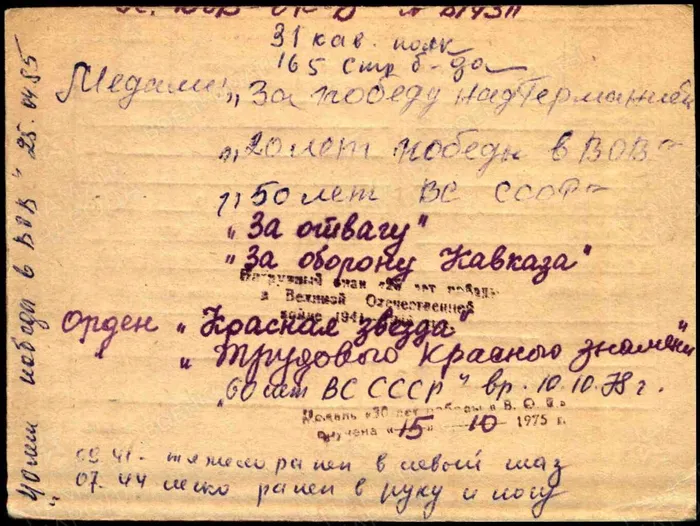 31 кав. полк
165 стр б-да
Медали: „За победу над Германией
„20 лет победы в ВОВ"
„50 лет ВС СССР"
„За отвагу"
„За оборону Кавказа"
Нагрудный знак «25 лет победы
в Великой Отечественной
войне 1941
Орден „Красная звезда"
„Трудового Красного знамени"
„60 лет ВС СССР" вр. 10.10.78 г.
Медаль «30 лет победы в В. О. В.»
вручена «15» 10 1975 г.
09.41 - тяжело ранен в левый глаз
07.44 легко ранен в руку и ногу
„40 лет победы в ВОВ" 25.04.85